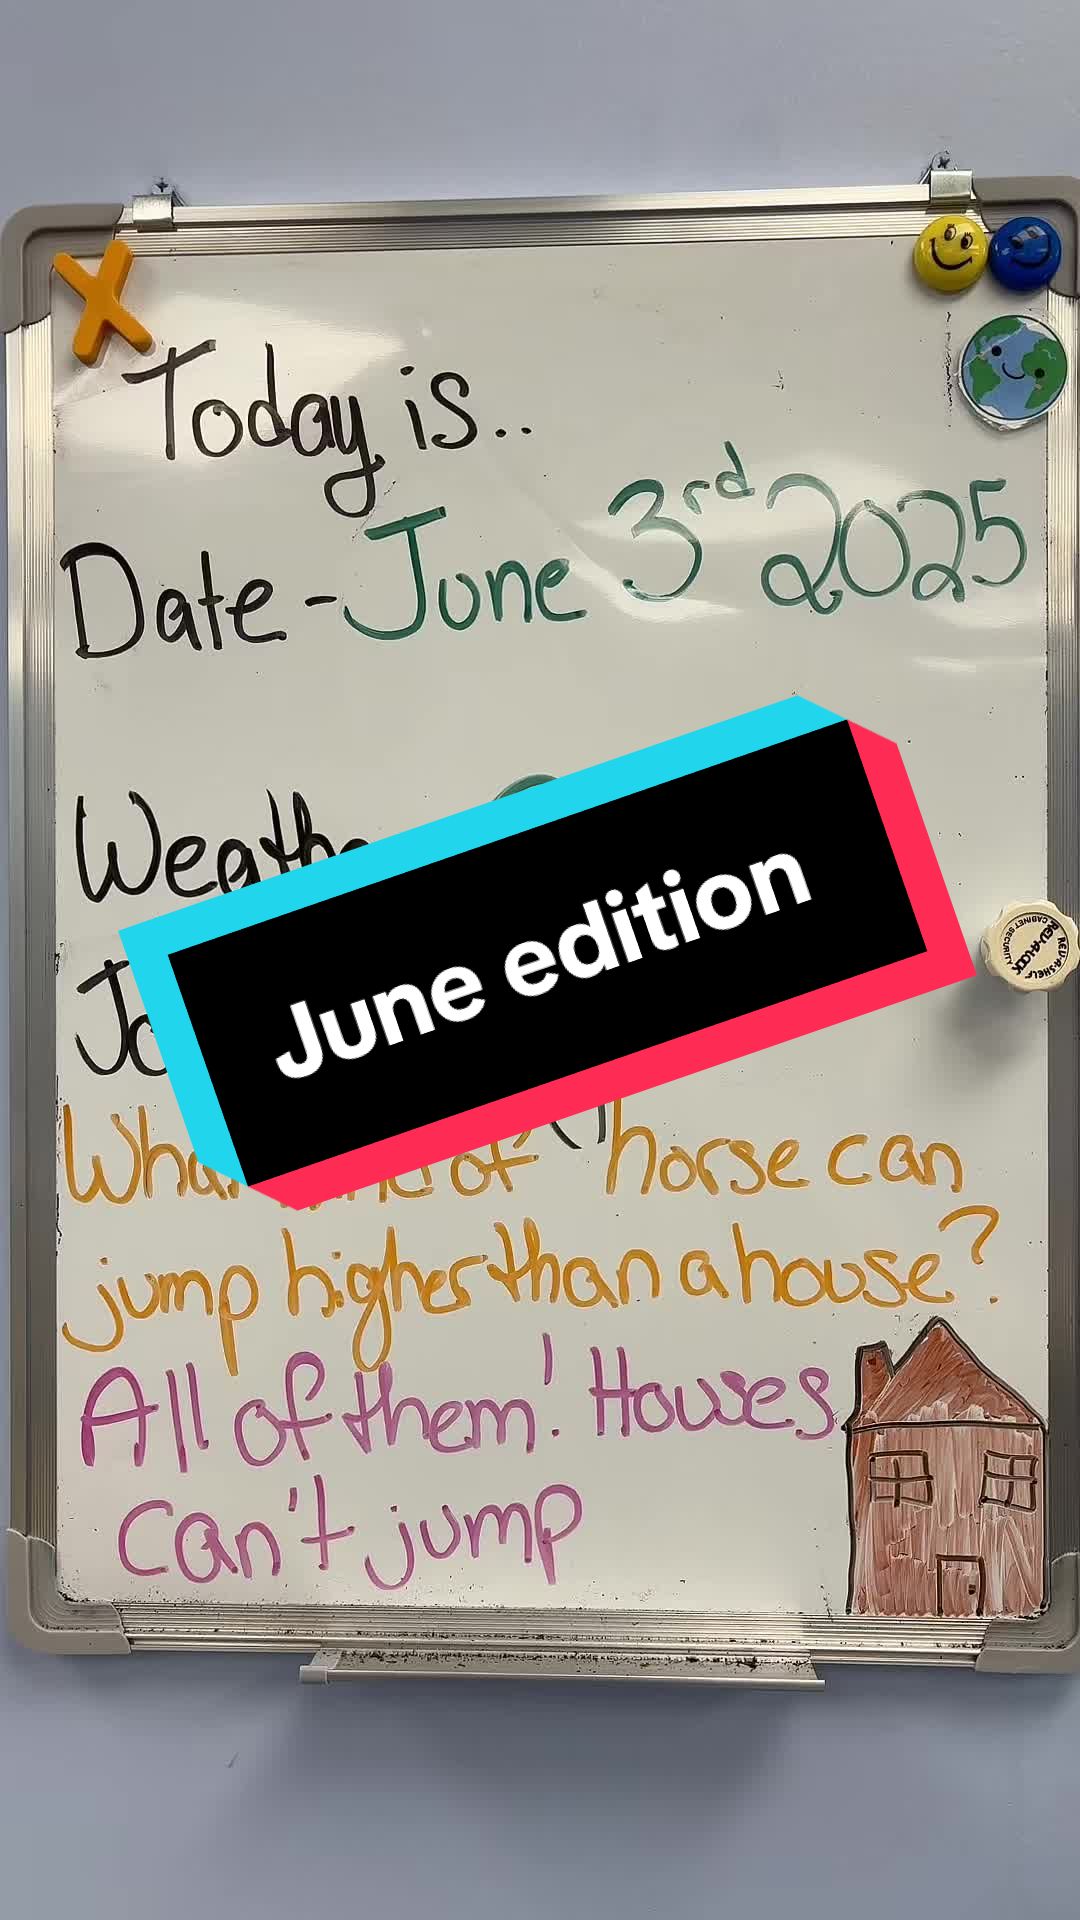 Today is..
Date - June 3rd 2025
June edition
of horse can
jump higher than a house?
All of them! Houses
can't jump
REV-A-SHELF
REV-A-LOCK
CABINET SECURITY